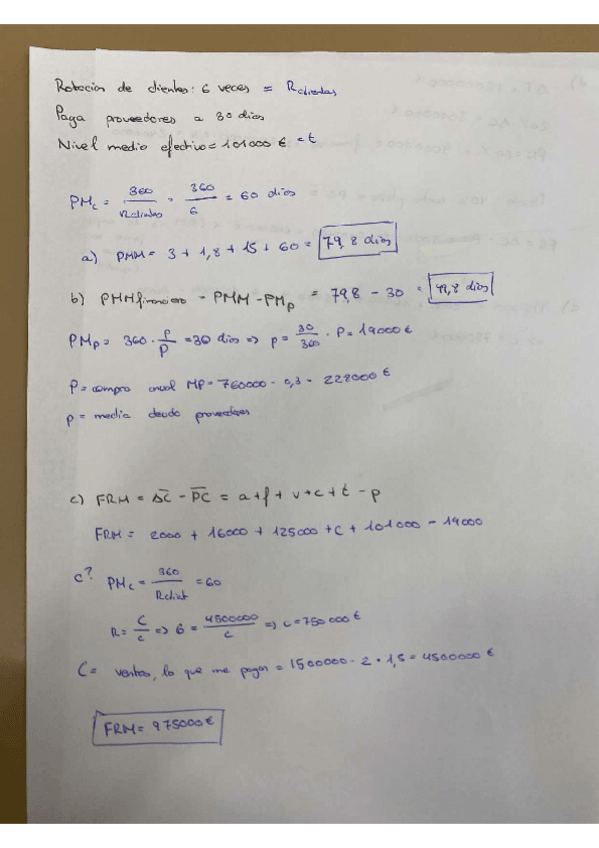 Rotacion de clientes: 6 veces = Rclientes
Paga proveedores a 30 dias
Nivel medio efectivo = 101000 € = t
PMc = 360/Rclientes = 360/6 = 60 dias
a) PMM = 3 + 1,8 + 15 + 60 = 79,8 dias
b) PMMfinanciero = PMM - PMp = 79,8 - 30 = 49,8 dias
PMp = 360 · p/P = 30 dias => p = 30/360 · P = 19000 €
P = compra anual MP = 760000 · 0,3 = 228000 €
p = media deuda proveedores
c) FRM = AC - PC = a + f + v + c + t - p
FRM = 2000 + 16000 + 125000 + C + 101000 - 19000
c? PMc = 360/Rclient = 60
R = C/c => 6 = 4500000/c => c = 750000 €
C = ventas, lo que me pagan = 1500000 · 2 · 1,5 = 4500000 €
FRM = 975000 €